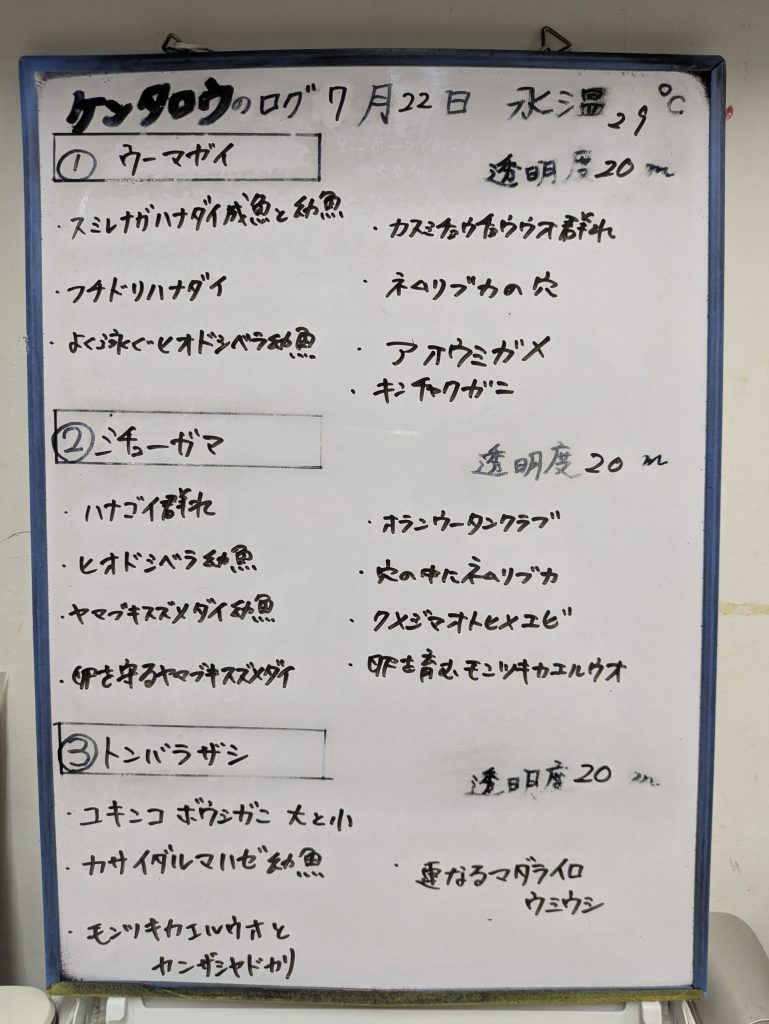 ケンタロウのログ 7月22日 水温29℃
① ウーマガイ
透明度20m
スミレナガハナダイ成魚と幼魚
・フチドリハナダイ
・よく泳ぐヒオドシベラ幼魚
・カスミチョウチョウウオ群れ
・ネムリブカの穴
・アオウミガメ
・キンチャクガニ
② シチューガマ
透明度20m
・ハナゴイ群れ
・ヒオドシベラ幼魚
・ヤマブキスズメダイ幼魚
・卵を守るヤマブキスズメダイ
・オランウータンクラブ
・穴の中にネムリブカ
・クメジマオトヒメエビ
・卵を育むモンツキカエルウオ
③ トンバラザシ
透明度20m
・ユキンコボウシガニ 大と小
・カサイダルマハゼ幼魚
・モンツキカエルウオと
カンザシヤドカリ
・重なるマダライロ
ウミウシ